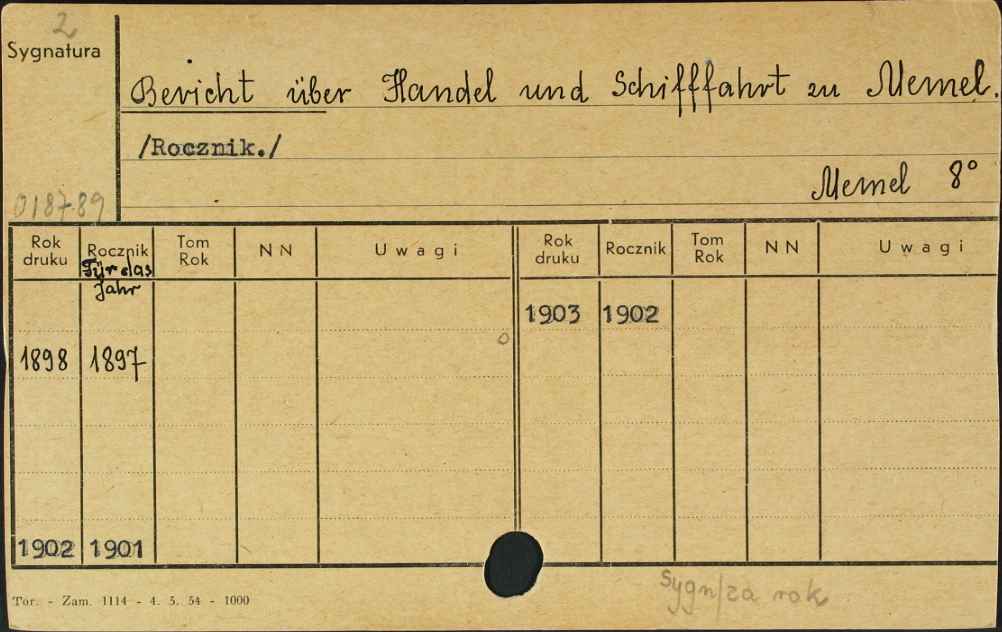 2
Sygnatura
Bericht über Handel und Schifffahrt zu Memel.
/Rocznik./
Memel 8°
0187.89
Rok druku Rocznik Tom Rok N N Uwagi Rok druku Rocznik Tom Rok N N Uwagi
Für das
Jahr
1903 1902
1898 1897
1902 1901
Tor. - Zam. 1114 - 4. 5. 54 - 1000
Sygn/za rok